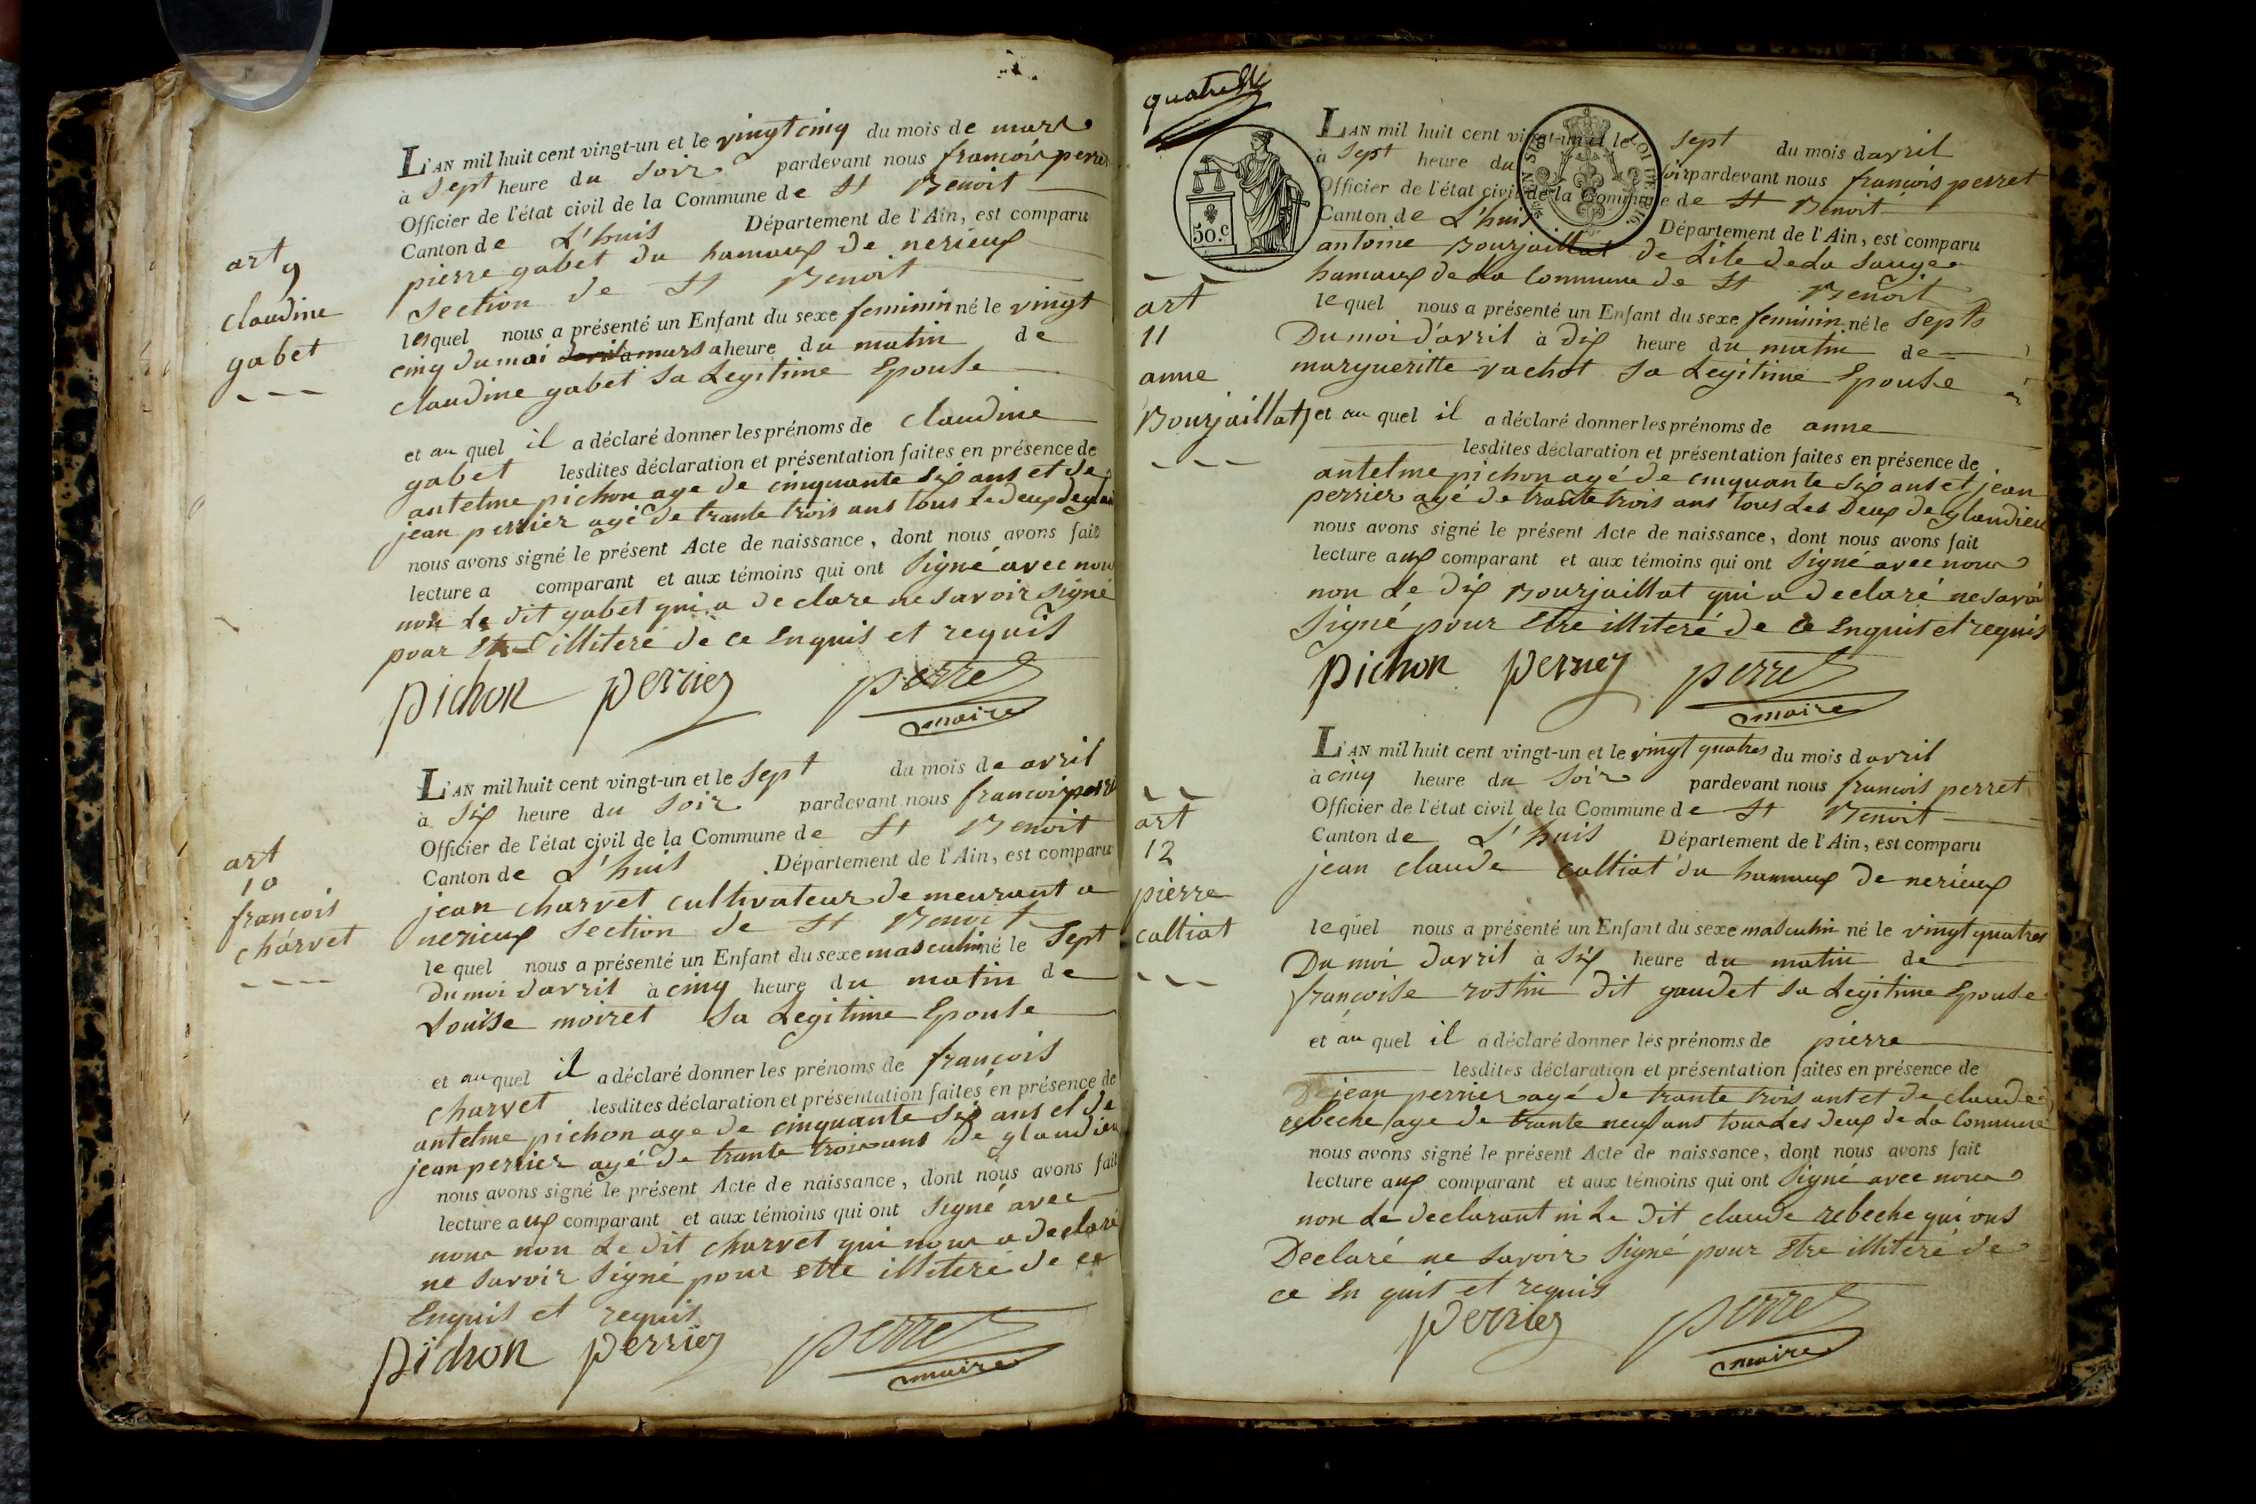 art
9
claudine
gabet
L'AN mil huit cent vingt-un et le vingt cinq du mois de mars
à sept heure du soir pardevant nous francois perret
Officier de l'état civil de la Commune de St Benoit
Canton de L'huis Département de l'Ain, est comparu
pierre gabet du hamaux de nerieux
section de St Benoit
lesquel nous a présenté un Enfant du sexe feminin né le vingt
cinq du moi mars a heure du matin de
claudine gabet sa Legitime Epouse
et au quel il a déclaré donner les prénoms de claudine
gabet lesdites déclaration et présentation faites en présence de
antelme pichon age de cinquante six ans et de
jean perrier agé de trante trois ans tous le deux de
nous avons signé le présent Acte de naissance, dont nous avons fait
lecture a comparant et aux témoins qui ont signé avec nous
non Le dit gabet qui a declare ne savoir signé
pour illiteré de ce Enquis et requis
pichon perrier perret
maire
art
10
francois
charvet
L'AN mil huit cent vingt-un et le sept du mois de avril
à six heure du soir pardevant nous francois perret
Officier de l'état civil de la Commune de St Benoit
Canton de L'huis Département de l'Ain, est comparu
jean charvet cultivateur de meurant a
nerieux section de St Benoit
le quel nous a présenté un Enfant du sexe masculin né le sept
du moi d'avril à cinq heure du matin de
Louise moiret sa Legitime Epouse
et au quel il a déclaré donner les prénoms de françois
charvet lesdites déclaration et présentation faites en présence de
antelme pichon age de cinquante six ans et de
jean perrier agé de trante trois ans de glandieu
nous avons signé le présent Acte de naissance, dont nous avons fait
lecture aux comparant et aux témoins qui ont signé avec
nous non Le dit charvet qui nous a declaré
ne savoir signé pour etre illiteré de ce
Enquis et requis
pichon perrier perret
maire
quatre
50.c
L'AN mil huit cent vingt-un et le sept du mois d avril
à sept heure du soir pardevant nous francois perret
Officier de l'état civil de la Commune de St Benoit
Canton de L'huis Département de l'Ain, est comparu
antoine Bourjaillat de Lile de La Sauge
hamaux de La Commune de St Benoit
art
11
anne
Bourjaillat
le quel nous a présenté un Enfant du sexe feminin né le septs
Du moi d'avril à dix heure du matin de
margueritte vachot sa Legitime Epouse
et au quel il a déclaré donner les prénoms de anne
lesdites déclaration et présentation faites en présence de
antelme pichon agé de cinquante six ans et jean
perrier agé de trante trois ans tous Les Deux de glandieu
nous avons signé le présent Acte de naissance, dont nous avons fait
lecture aux comparant et aux témoins qui ont signé avec nous
non Le dix Bourjaillat qui a declaré ne savoir
signé pour Etre illiteré de ce Enquit et requis
pichon perrier perret
maire
art
12
pierre
caltiat
L'AN mil huit cent vingt-un et le vingt quatres du mois d avril
à cinq heure du soir pardevant nous francois perret
Officier de l'état civil de la Commune de St Benoit
Canton de L'huis Département de l'Ain, est comparu
jean claude caltiat du hamaux de nerieux
le quel nous a présenté un Enfant du sexe masculin né le vingt quatres
Du moi d'avril à six heure du matin de
françoise rostin dit gaudet sa Legitime Epouse
et au quel il a déclaré donner les prénoms de pierre
lesdites déclaration et présentation faites en présence de
De jean perrier agé de trante trois ant et de claude
rebeche age de trante neuf ans tous Les deux de La Commune
nous avons signé le présent Acte de naissance, dont nous avons fait
lecture aux comparant et aux témoins qui ont signé avec nous
non Le declarant ni Le dit claude rebeche qui ons
Declaré ne savoir signé pour Etre illiteré de
ce En quit et requis
perrier perret
maire